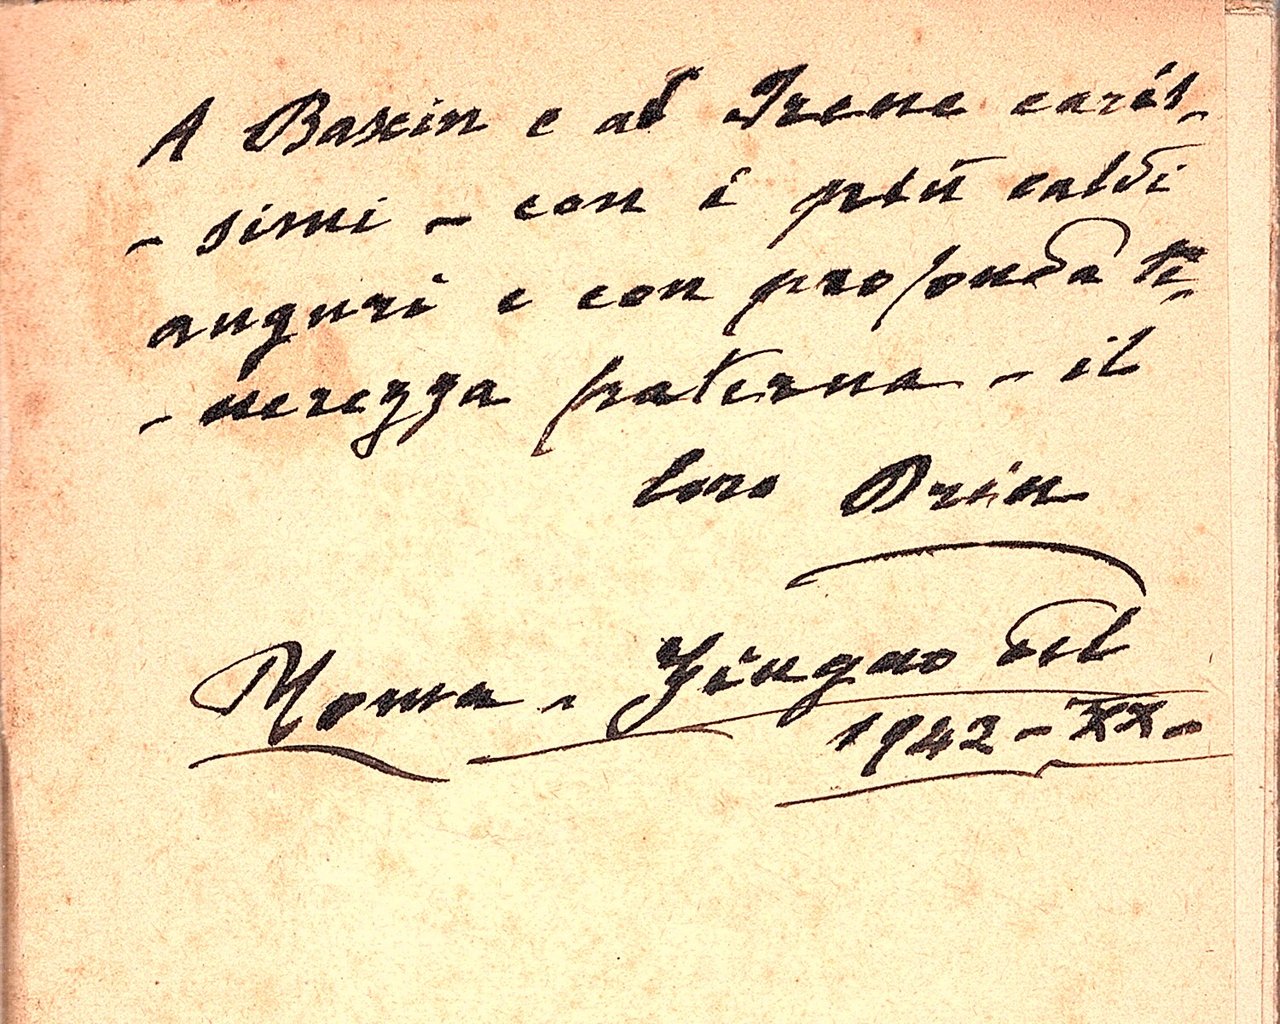 A Baxin e ad Irene caris-
-simi - con i più caldi
auguri e con profonda te-
-nerezza fraterna - il
loro Drin
Roma - Giugno del
1942 - XX -